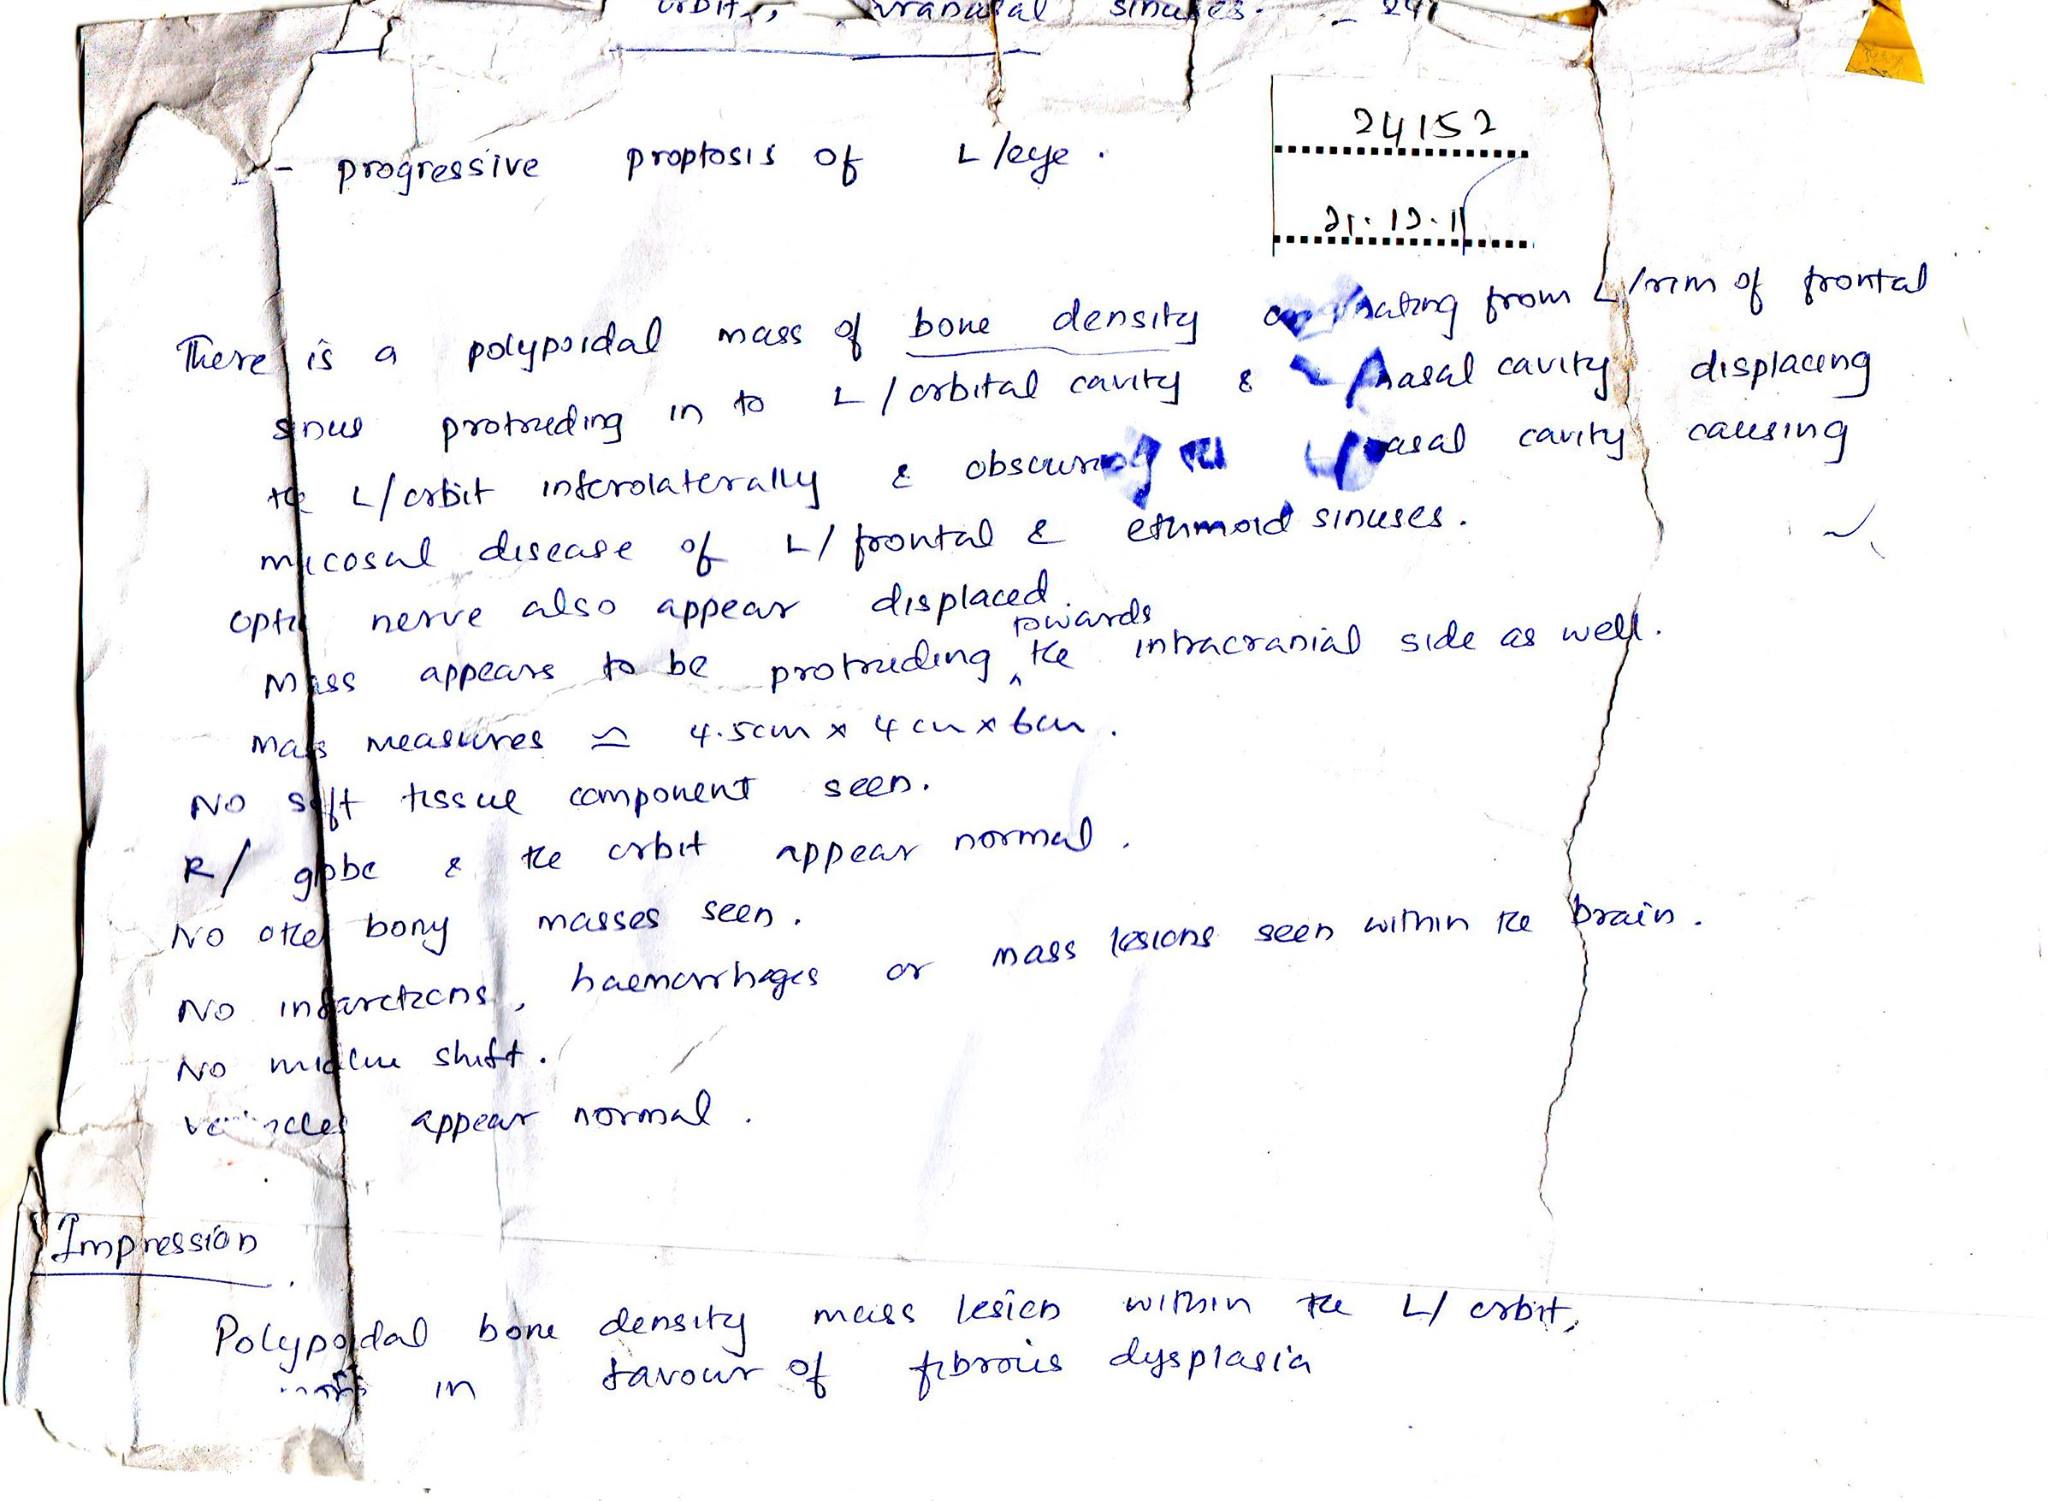 orbit, paranasal sinuses. - 241
- progressive proptosis of L/eye.
24152
21.12.11
There is a polypoidal mass of bone density originating from L/rim of frontal
sinus protruding in to L/orbital cavity & L/nasal cavity displacing
the L/orbit inferolaterally & obscuring the L/nasal cavity causing
mucosal disease of L/frontal & ethmoid sinuses.
optic nerve also appear displaced.
Mass appears to be protruding towards the intracranial side as well.
Mass measures ≃ 4.5cm x 4cm x 6cm.
No soft tissue component seen.
R/ globe & the orbit appear normal.
No other bony masses seen.
No infarctions, haemorrhages or mass lesions seen within the brain.
No midline shift.
ventricles appear normal.
Impression
Polypoidal bone density mass lesion within the L/ orbit,
in favour of fibrous dysplasia